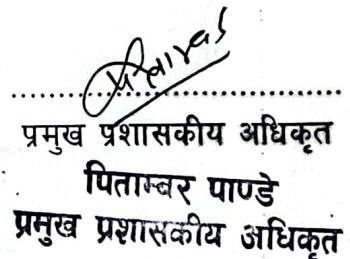 प्रमुख प्रशासकीय अधिकृत
पिताम्बर पाण्डे
प्रमुख प्रशासकीय अधिकृत